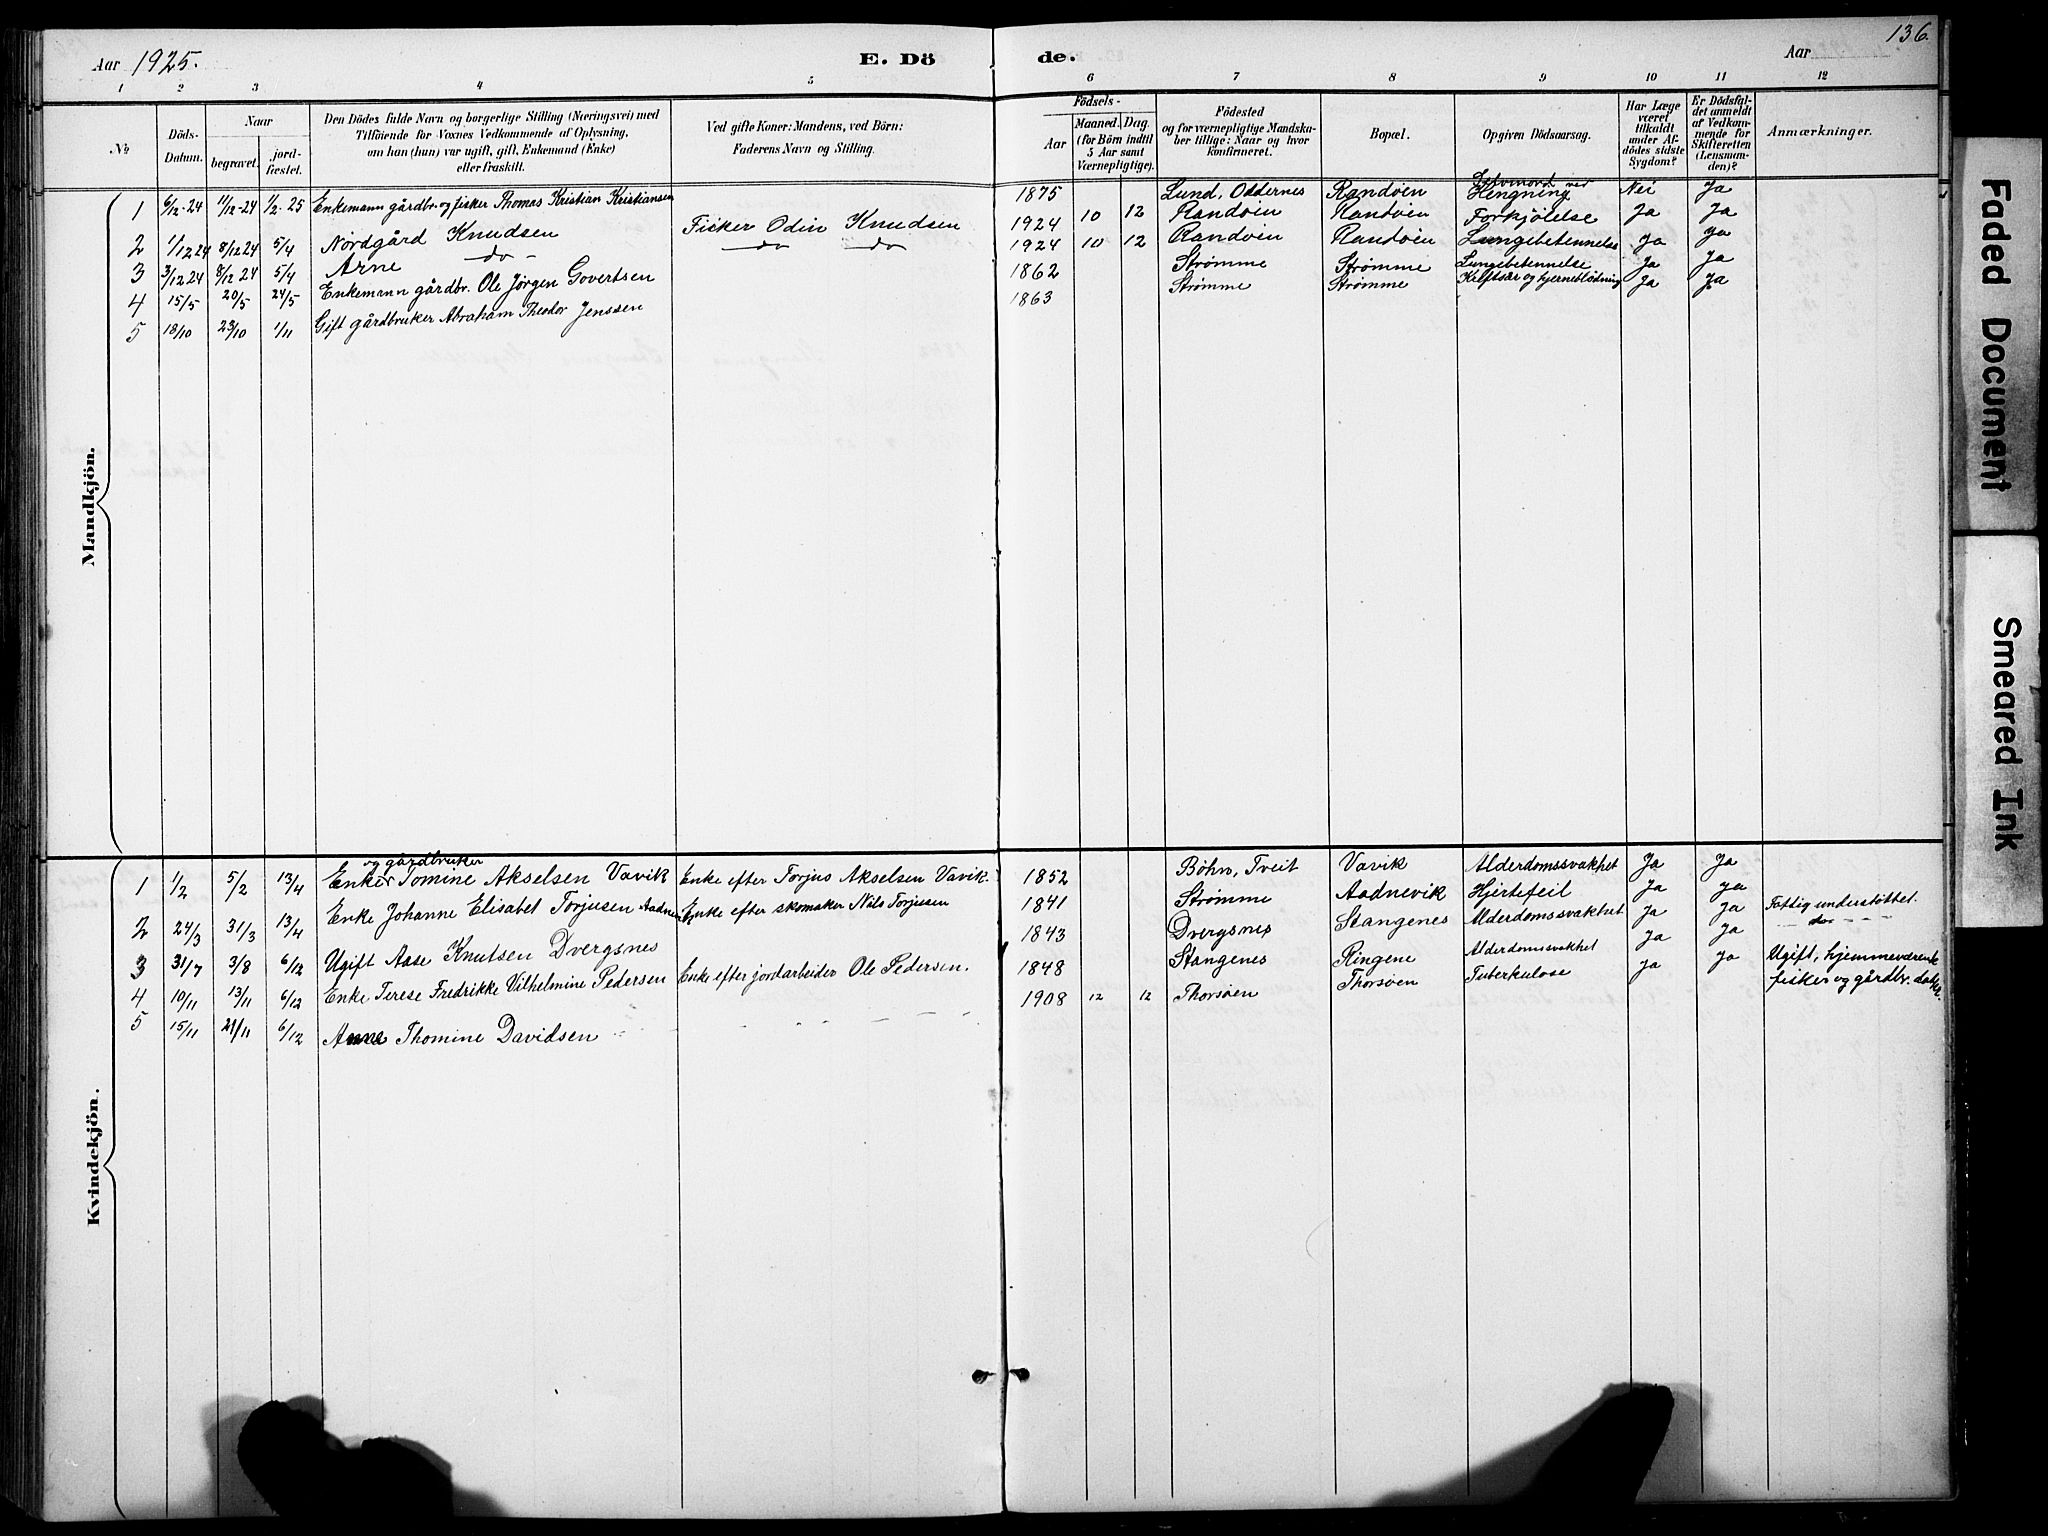 136.
Aar 1925.
E. Dö
de.
Aar
1 2 3 4 5 6 7 8 9 10 11 12
№
Döds-Datum.
Naar
begravet.
jord-fæstet.
Den Dödes fulde Navn og borgerlige Stilling (Næringsvei) med
Tilföiende for Voxnes Vedkommende af Oplysning,
om han (hun) var ugift, gift, Enkemand (Enke)
eller fraskilt.
Ved gifte Koner: Mandens, ved Börn:
Faderens Navn og Stilling.
Födsels-
Aar
Maaned. Dag
(for Börn indtil
5 Aar samt
Værnepligtige).
Födested
og for værnepligtige Mandska-
ber tillige: Naar og hvor
konfirmeret.
Bopæl.
Opgiven Dödsaarsag.
Har Læge
været
tilkaldt
under Af-
dödes sidste
Sygdom?
Er Dödsfal-
det anmeldt
af Vedkom-
mende for
Skifteretten
(Lensman-
den)?
Anmærkninger.
Mandkjön.
1 6/12-24 11/12-24 1/2-25 Enkemann gårdbr. og fisker Thomas Kristian Kristiansen 1875 Lund, Oddernes Randøen Selvmord ved Hengning Nei Ja
2 1/12 24 8/12 24 5/4 Nordgård Knudsen Fisker Odin Knudsen 1924 10 12 Randøen Randøen Forkjølelse Ja Ja
3 3/12 24 8/12 24 5/4 Arne do - do do 1924 10 12 Randøen Randøen Lungebetennelse Ja Ja
4 15/5 20/5 24/5 Enkemann gårdbr. Ole Jørgen Govertsen 1862 Strømme Strømme Lungebetennelse Ja Ja
5 18/10 23/10 1/11 Gift gårdbruker Abraham Theodor Jenssen 1863 Strømme Strømme og hjerneblødning Ja Ja
Kvindekjön.
og gårdbruker
1 1/2 5/2 13/4 Enke Tomine Akselsen Vavik Enke efter Torjus Akselsen Vavik. 1852 Bøhn, Tveit Vavik Alderdomssvakhet Ja Ja
2 24/3 31/3 13/4 Enke Johanne Elisabet Torjusen Enke efter skomaker Nils Torjusen 1841 Strømme Aadnevik Hjertefeil Ja Ja Fattigunderstøttet.
3 31/7 3/8 6/12 Ugift Aase Knutsen Dvergsnes 1843 Dvergsnes Stangenes Alderdomssvakhet Ja Ja do
4 10/11 13/11 6/12 Enke Terese Fredrikke Vilhelmine Pedersen Enke efter jordarbeider Ole Pedersen. 1848 Stangenes Ringene Alderdomssvakhet Ja Ja
5 15/11 21/11 6/12 Anne Thomine Davidsen 1908 12 12 Thorsøen Thorsøen Tuberkulose Ja Ja Ugift, hjemmeværende
fisker og gårdbr.
Faded Document
Smeared Ink